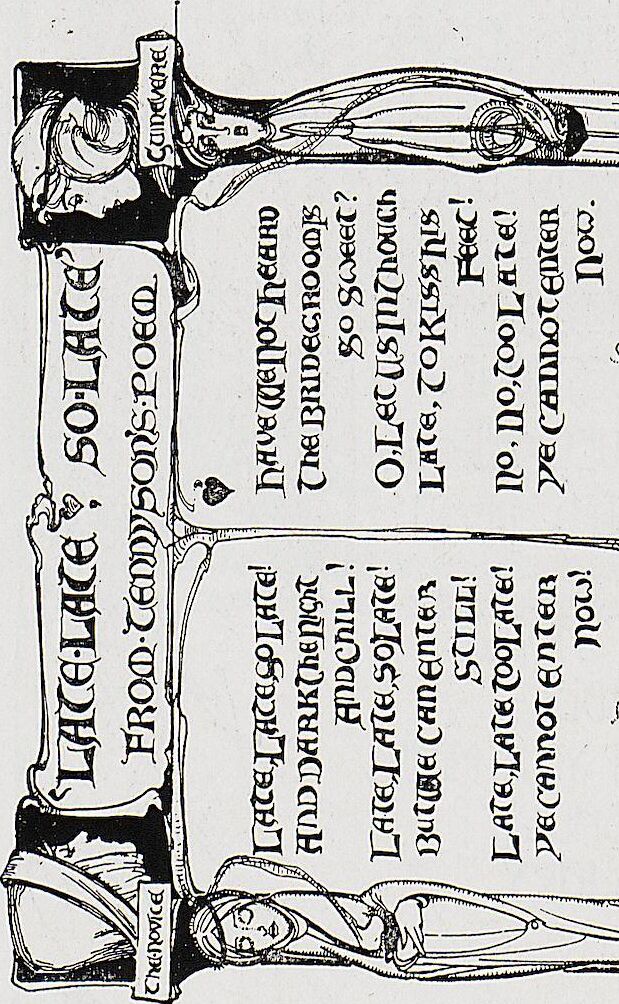 "LATE·LATE, SO·LATE"
FROM·TENNYSON'S·POEM.
THE NOVICE
GUINEVERE
LATE, LATE, SO LATE!
AND DARK THE NIGHT
AND CHILL!
LATE, LATE, SO LATE!
BUT WE CAN ENTER
STILL!
LATE, LATE TOO LATE!
YE CANNOT ENTER
NOW!
HAVE WE NOT HEARD
THE BRIDEGROOM IS
SO SWEET?
O, LET US IN THOUGH
LATE, TO KISS HIS
FEET!
NO, NO, TOO LATE!
YE CANNOT ENTER
NOW.